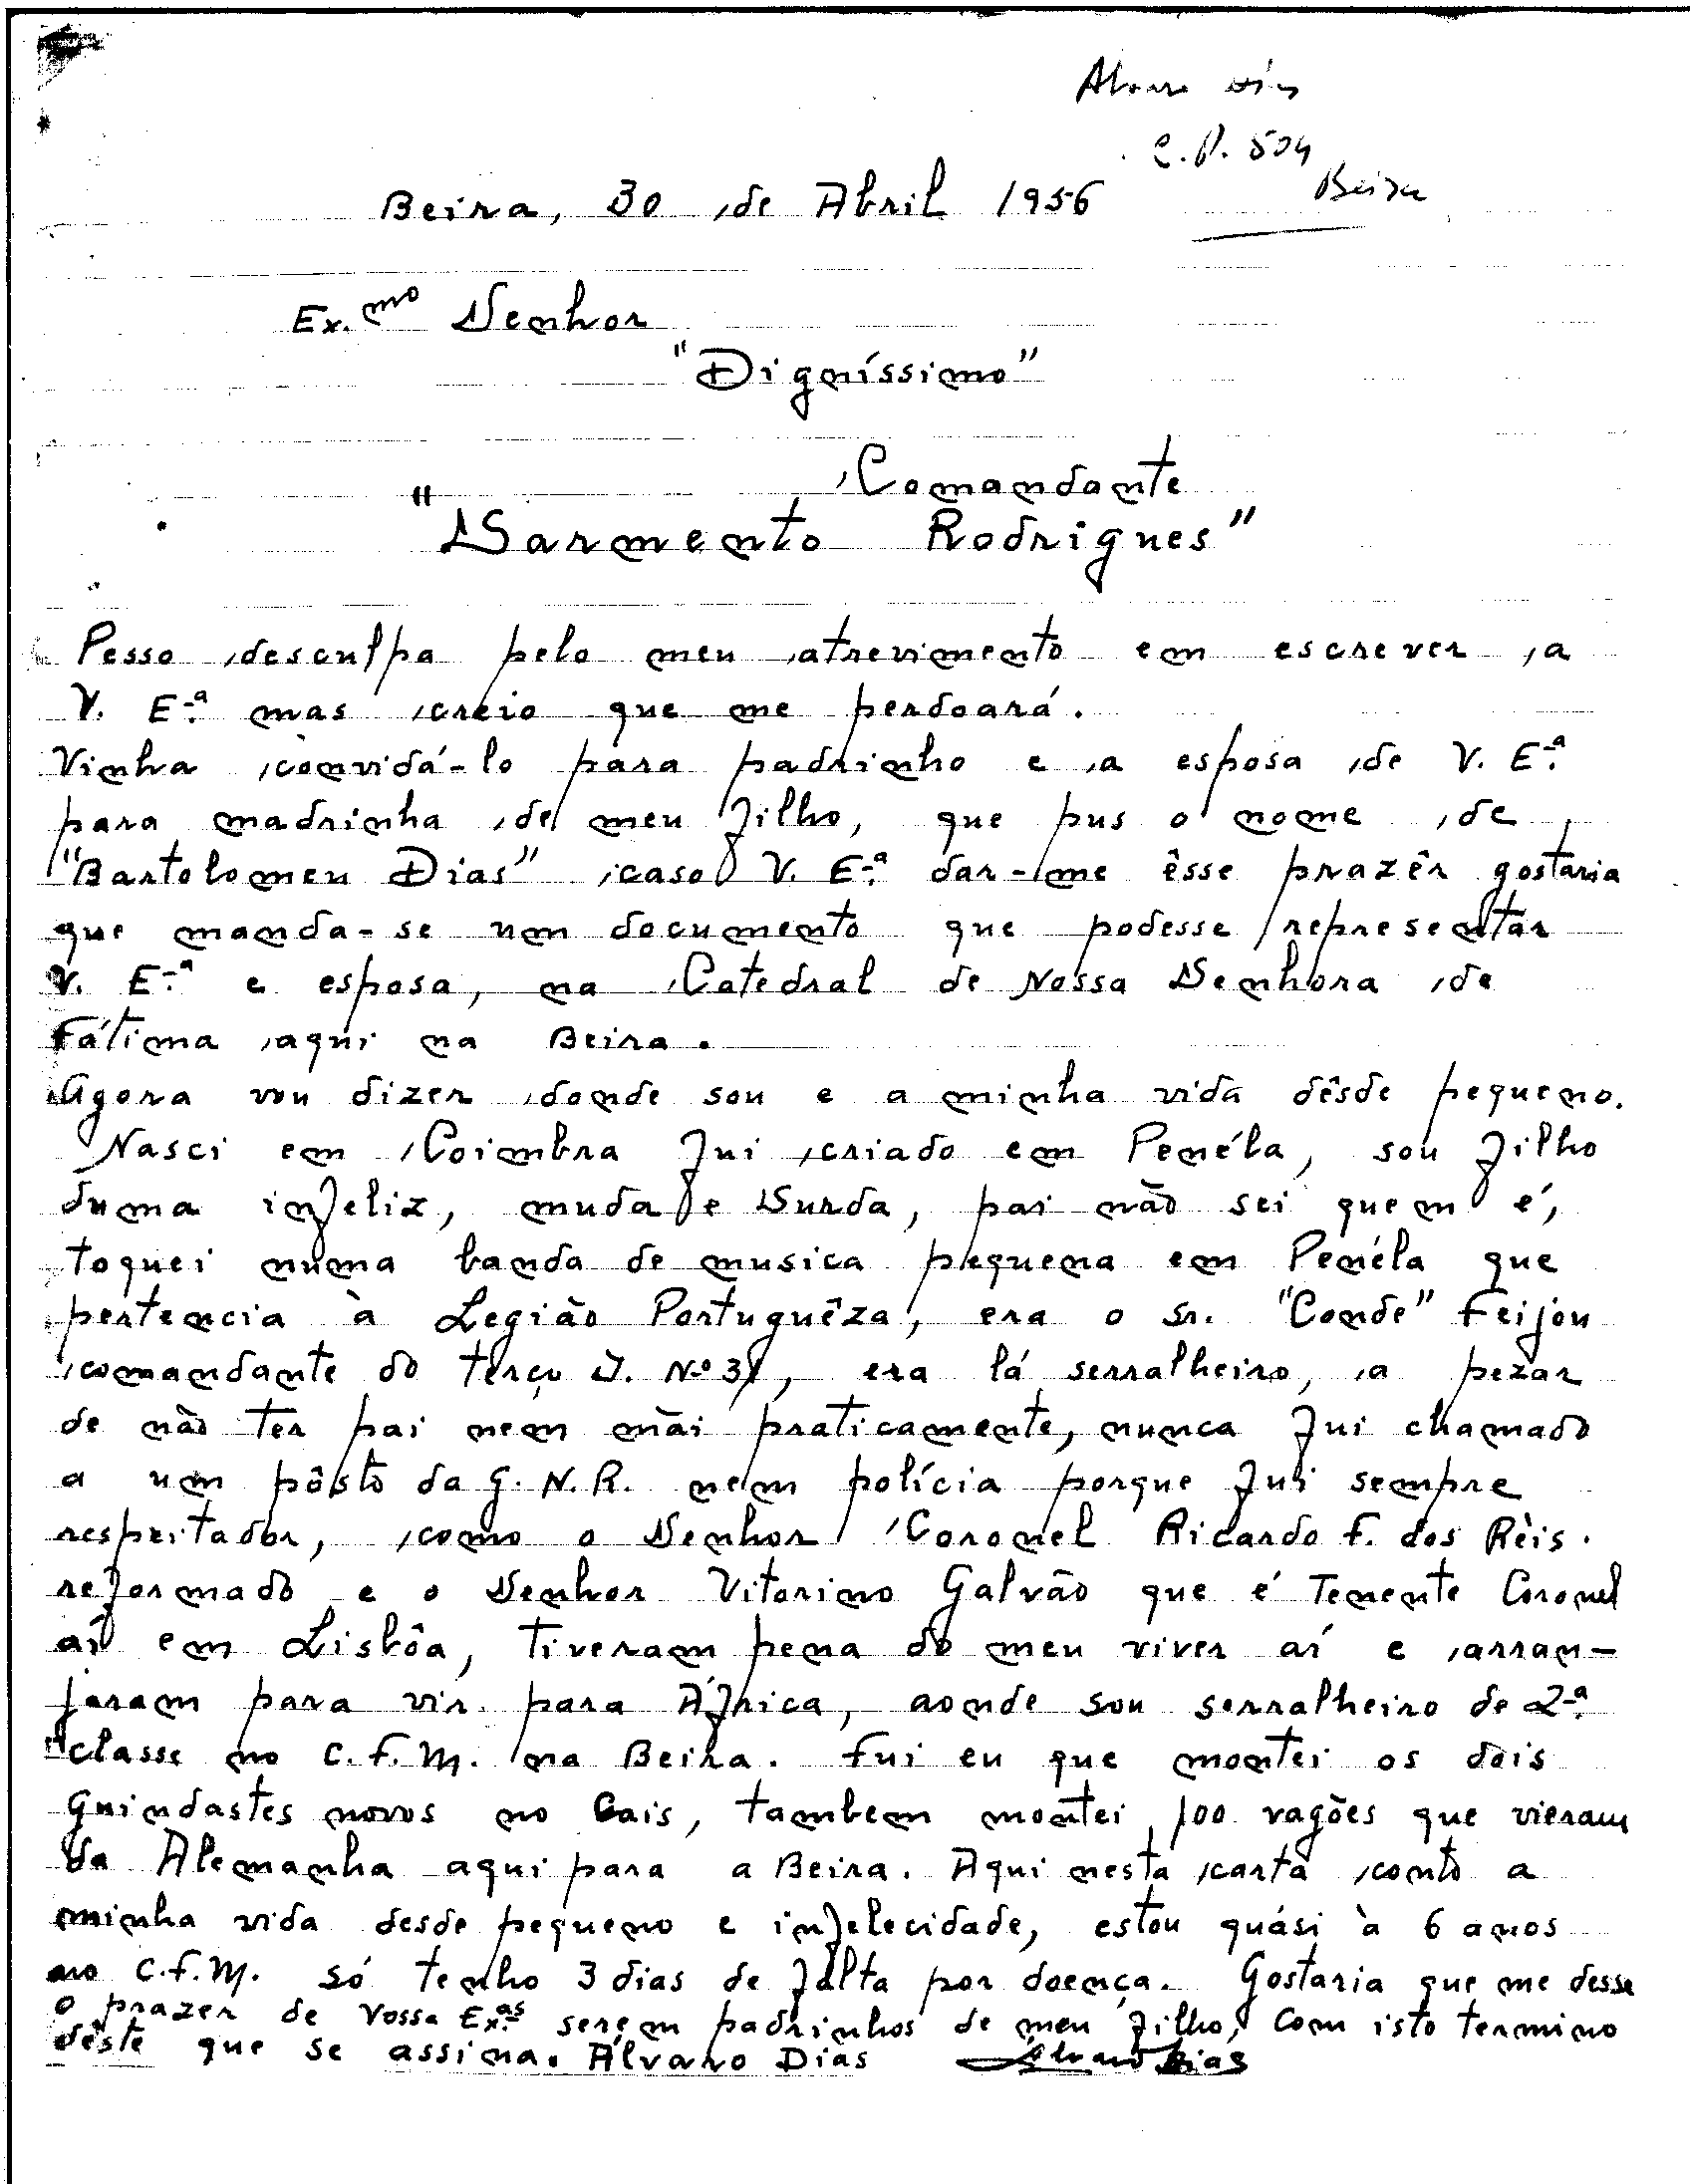 Alvaro Dias
C.P. 504
Beira
Beira, 30 de Abril 1956
Ex.mo Senhor
"Digníssimo"
Comandante
"Sarmento Rodrigues"
Pesso desculpa pelo meu atrevimento em escrever a
V. E.ª mas creio que me perdoará.
Vinha convidá-lo para padrinho e a esposa de V. E.ª
para madrinha de meu filho, que pus o nome de
"Bartolomeu Dias" caso V. E.ª dar-me êsse prazêr gostaria
que manda-se um documento que podesse representar
V. E.ª e esposa, na Catedral de Nossa Senhora de
Fátima aqui na Beira.
Agora vou dizer donde sou e a minha vida dêsde pequeno.
Nasci em Coimbra fui criado em Penéla, sou filho
duma infeliz, muda e Surda, pai não sei quem é,
toquei numa banda de musica pequena em Penéla que
pertencia à Legião Portuguêza, era o Sr. "Conde" Feijou
comandante do terço I. Nº 31, era lá serralheiro, a pezar
de não ter pai nem mãi praticamente, nunca fui chamado
a um pôsto da G. N. R. nem polícia porque fui sempre
respeitador, como o Senhor Coronel Ricardo F. dos Rèis.
reformado e o Senhor Vitorino Galvão que é Tenente Coronel
aí em Lisbôa, tiveram pena do meu viver aí e arran-
jaram para vir para África, aonde sou serralheiro de 2.ª
classe no C. F. M. na Beira. Fui eu que montei os dois
guindastes novos no Cais, tambem montei 100 vagões que vieram
da Alemanha aqui para a Beira. Aqui nesta carta conto a
minha vida desde pequeno e infelecidade, estou quási à 6 anos
no C.F.M. só tenho 3 dias de falta por doença. Gostaria que me desse
o prazer de Vossa Ex.as serem padrinhos de meu filho, Com isto termino
dêste que se assina. Álvaro Dias Álvaro Dias